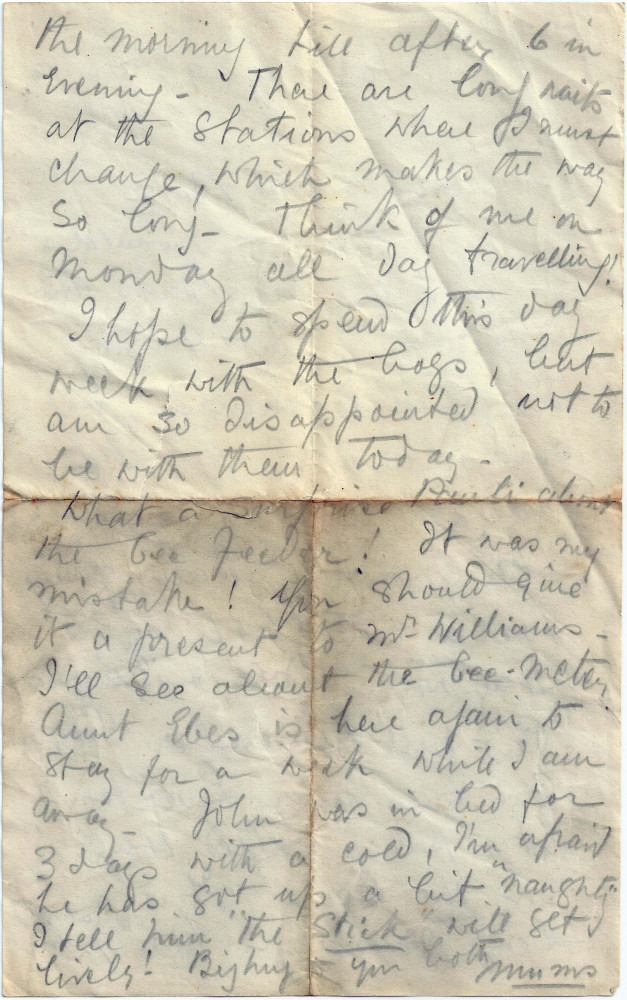 the morning till after 6 in
Evening - There are long waits
at the Stations where I must
change, which makes the way
So long - Think of me on
Monday all day travelling!
I hope to spend this day
week with the boys, but
am so disappointed not to
be with them today -
What a surprise about
the bee feeder! It was my
mistake! You should give
it a present to Mr Williams -
I'll see about the bee-
Aunt Ebes is here again to
stay for a week while I am
away - John was in bed for
3 days with a cold, I'm afraid
he has got up a bit "naughty"
I tell him "the Stick" will get
lively! Big hug to you both
Mums